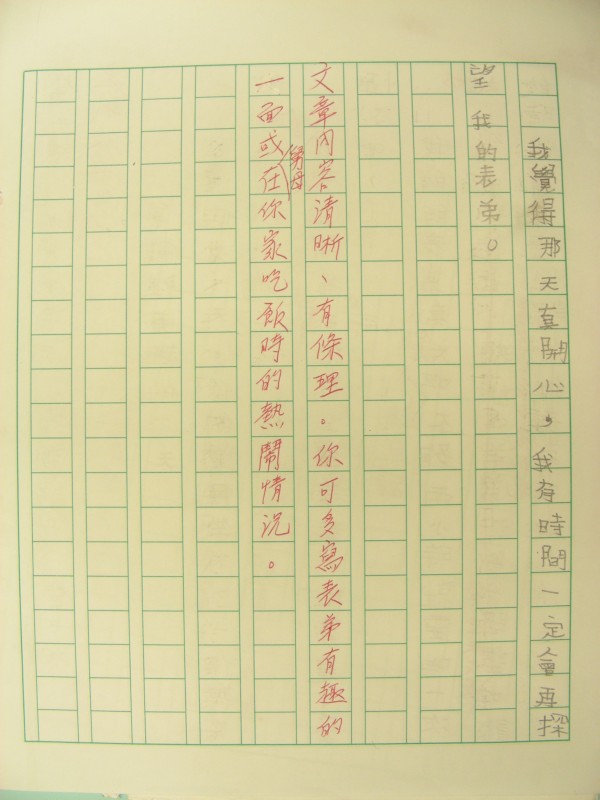 我覺得那天真開心，我有時間一定會再探
望我的表弟。
文章內容清晰、有條理。你可多寫表弟有趣的
一面或在舅母你家吃飯時的熱鬧情況。